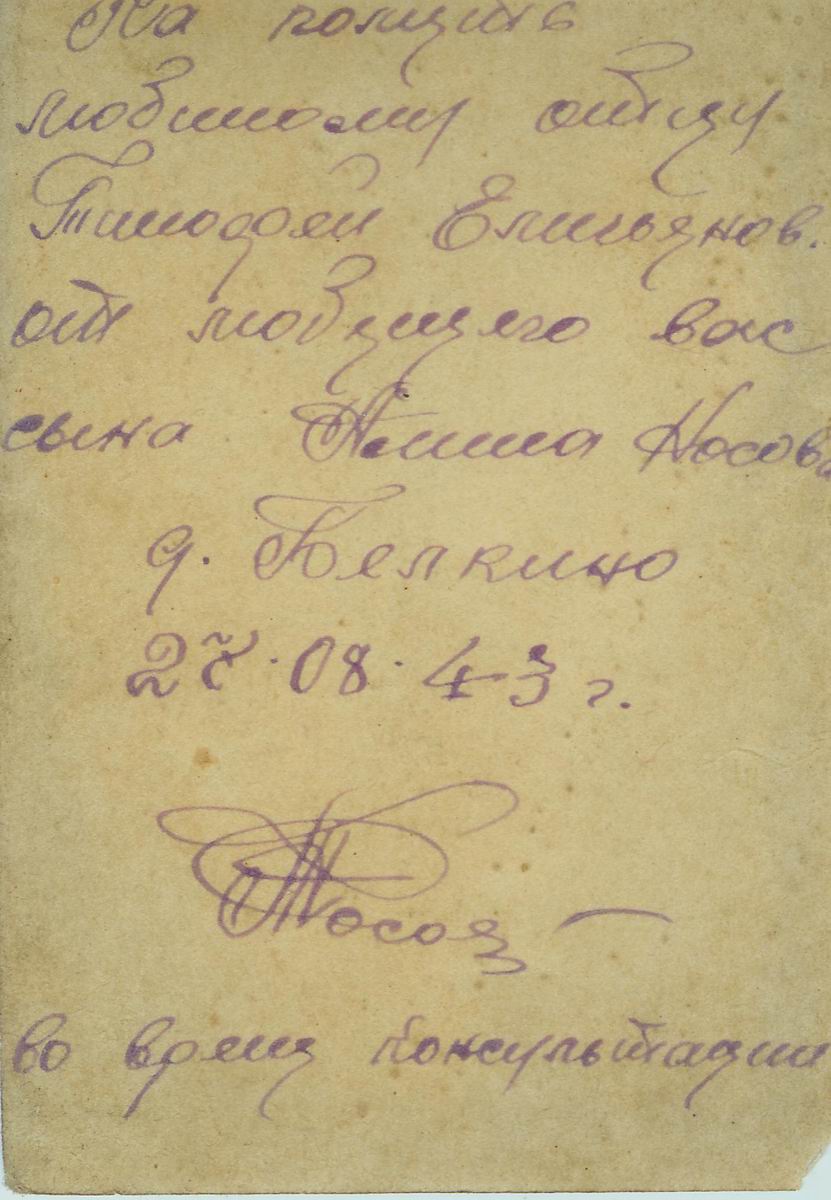 На помить
любимому отцу
Тимофей Емильянов.
от любящего вас
сына Носова
д. Белкино
27.08.43 г.
Носов
во время консультации